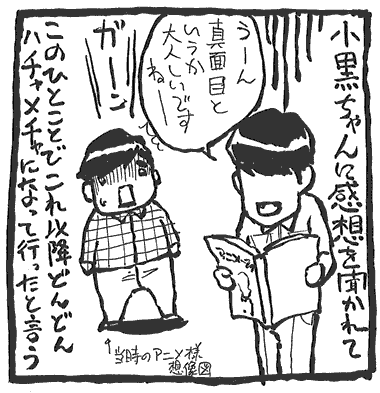 小黒ちゃんに感想を聞かれて
うーん
真面目と
いうか
大人しいです
ねー
ガーン
このひとことでこれ以降どんどん
ハチャメチャになって行ったと言う
↑当時のアニメ様
想像図